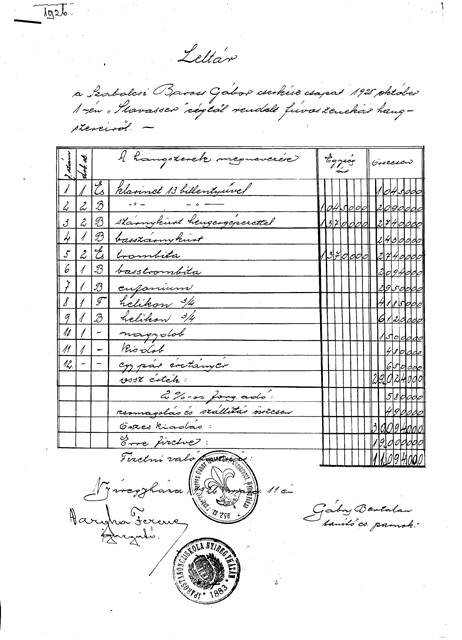 1926
Leltár
a Szabolcsi Baross Gábor cserkész csapat 1925 október
1-én „Stowasser" cégtől rendelt fúvószenekar hang-
szereiről. —
A hangszerek megnevezése Egység ár Összesen
1 1 Es klarinet 13 billentyűvel 1045000
2 2 B -"- -"- 1045000 2090000
3 2 B szárnykürt hengergépezettel 1370000 2740000
4 1 B basszárnykürt 2430000
5 2 Es trombita 1370000 2740000
6 1 B basstrombita 2094000
7 1 B eufonium 2950000
8 1 F helikon 3/4 4185000
9 1 B helikon 3/4 6120000
10 1 - nagydob 1500000
11 1 - kisdob 480000
12. - egy pár cintányér 650000
össz érték: 29024000
2%-os forg. adó: 580000
csomagolás és szállítás összesen 490000
Összes kiadás: 30094000
Erre fizetve: 19000000
Fizetni való 11094000
Nyíregyháza 1926 11 én
Ferenc
igazgató.
Gáby Bertalan
tanító cs. parnok.
IPAROSTANONCISKOLA NYIREGYHÁZÁN
1883